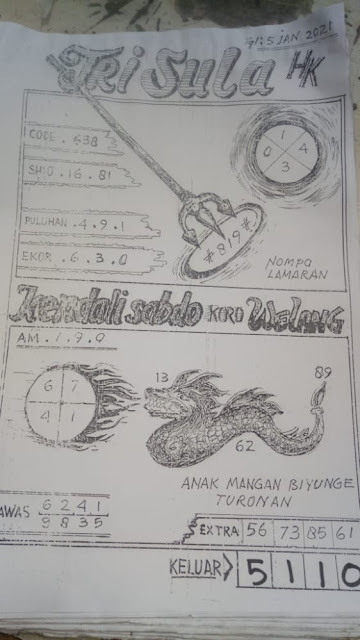 9/: 5 JAN 2021
Tri Sula HK
CODE . 638
SHIO . 16 . 81
PULUHAN . 4 . 9 . 1
EKOR . 6 . 3 . 0
1
0 4
3
* 819 *
NOMPO
LAMARAN
Kendali sabdo KORO Welang
AM . 7 . 9 . 0
6 7
4 1
13
89
62
ANAK MANGAN BIYUNGE
TURONAN
AWAS 6 2 4 1
9 8 3 5
EXTRA 56 73 85 61
KELUAR> 5 1 1 0